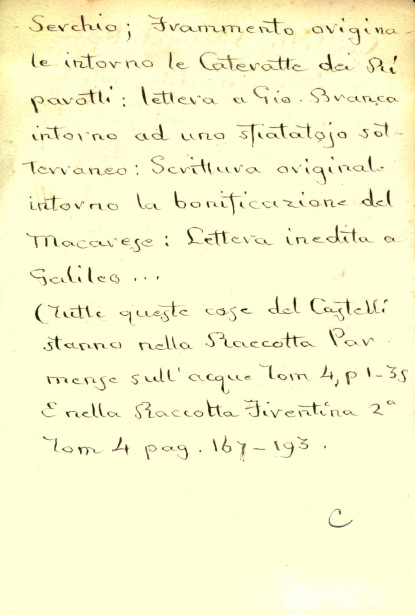 Serchio; Frammento origina-
le intorno le Cateratte dei Ri
parotti: lettera a Gio. Branca
intorno ad uno sfiatatojo sot-
terraneo: Scrittura original.
intorno la bonificazione del
Macarese: Lettera inedita a
Galileo ...
(Tutte queste cose del Castelli
stanno nella Raccotta Par-
mense sull'acque Tom 4, p 1-35
E nella Raccotta Fiventina 2a
Tom 4 pag. 167-193.
C